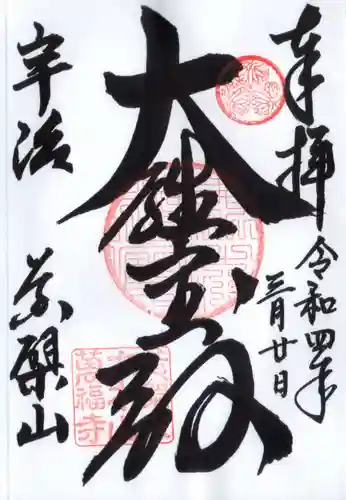 奉拝
令和四年
三月廿日
大雄宝殿
宇治
黄檗山
萬福寺